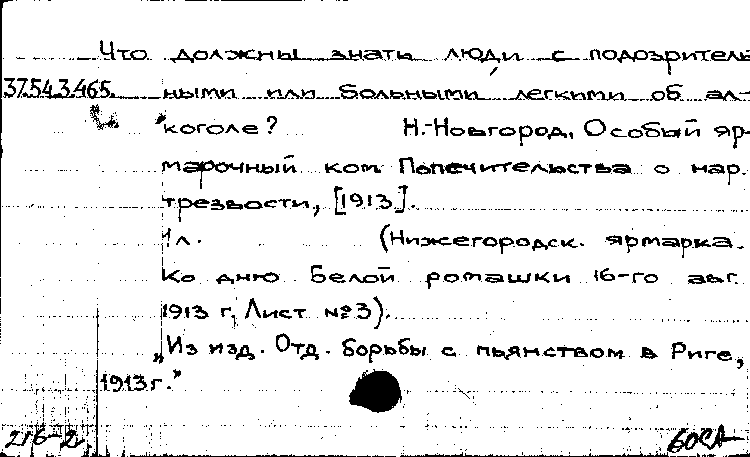 Что должны знать люди с подозритель
37.54.3.465. ными или больными легкими об ал-
коголе? Н.-Новгород, Особый яр-
марочный ком Попечительства о нар.
трезвости, [1913].
1л. (Нижегородск. ярмарка.
Ко дню Белой ромашки 16-го авг.
1913 г. Лист №3).
„Из изд. Отд. борьбы с пьянством в Риге,
1913г.”
216-2